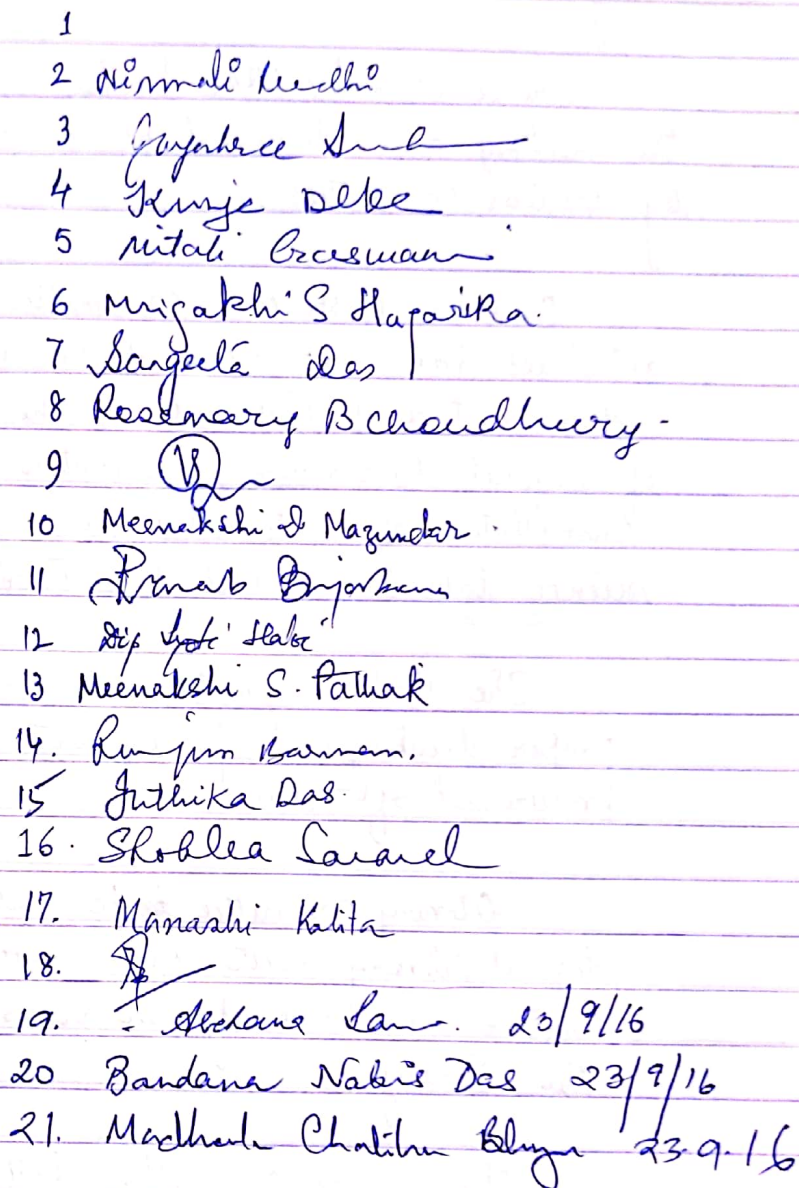 1
2 Nirmali Medhi
3 Gayatree
4 Kunja Deka
5 Mitali Goswami
6 Mrigakhi S Hazarika.
7 Sangeeta Das
8 Rosemary B Choudhury -
9
10 Meenakshi D Mazumdar.
11 Pranab Bujarbarua
12 Dip Jyoti Haloi
13 Meenakshi S. Pathak
14. Runjun Barman.
15 Juthika Das.
16.
17. Manashi Kalita
18.
19. 23/9/16
20 Bandana Nabis Das 23/9/16
21. Chaliha Bhuyan 23.9.16